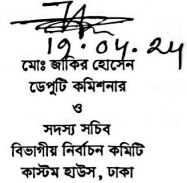 19.04.24
মোঃ জাকির হোসেন
ডেপুটি কমিশনার
ও
সদস্য সচিব
বিভাগীয় নির্বাচন কমিটি
কাস্টম হাউস, ঢাকা